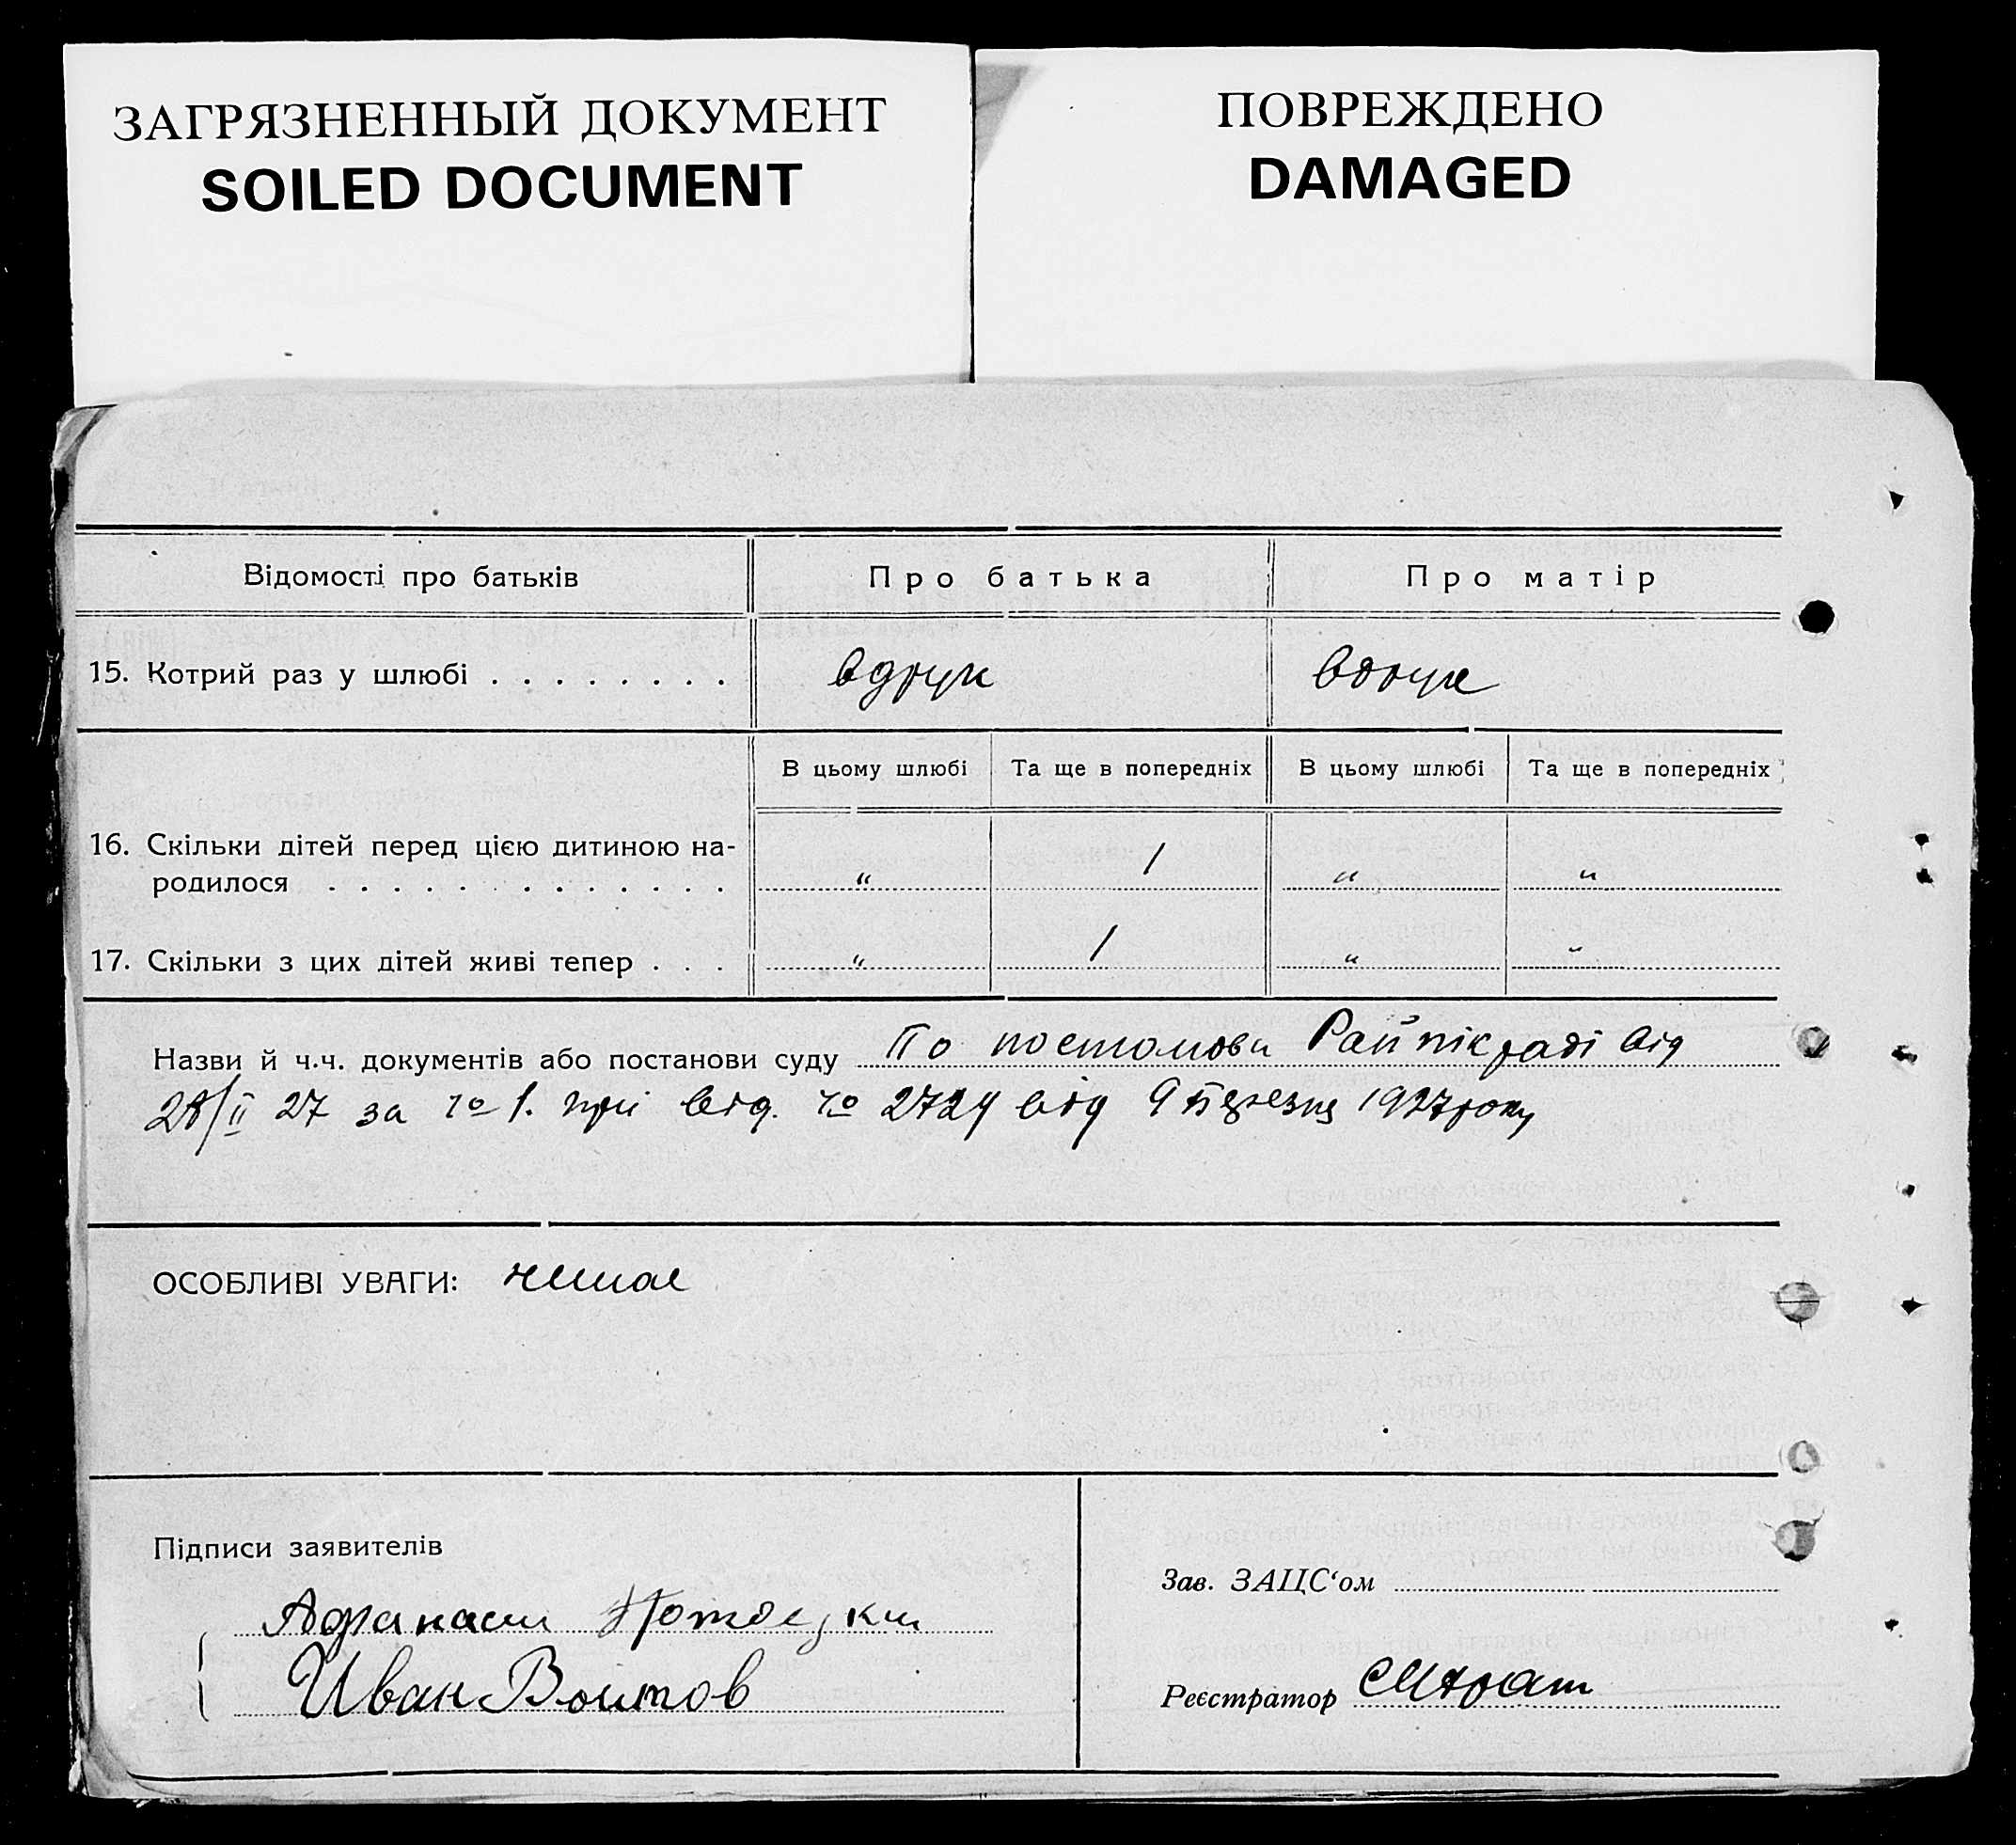 ЗАГРЯЗНЕННЫЙ ДОКУМЕНТ
SOILED DOCUMENT
ПОВРЕЖДЕНО
DAMAGED
Відомості про батьків Про батька Про матір
15. Котрий раз у шлюбі . . . . . . . . вдрук вдруге
В цьому шлюбі Та ще в попередніх В цьому шлюбі Та ще в попередніх
16. Скільки дітей перед цією дитиною на-
родилося . . . . . . . . . . . . . „ 1 „ „
17. Скільки з цих дітей живі тепер . . . „ 1 „ „
Назви й ч.ч. документів або постанови суду По постанови від
28/II 27 за № 1. при від. № 2724 від 9 Березня 1927 року
ОСОБЛИВІ УВАГИ: немає
Підписи заявителів
Афанасий
Иван Воитов
Зав. ЗАЦС‘ом
Реєстратор